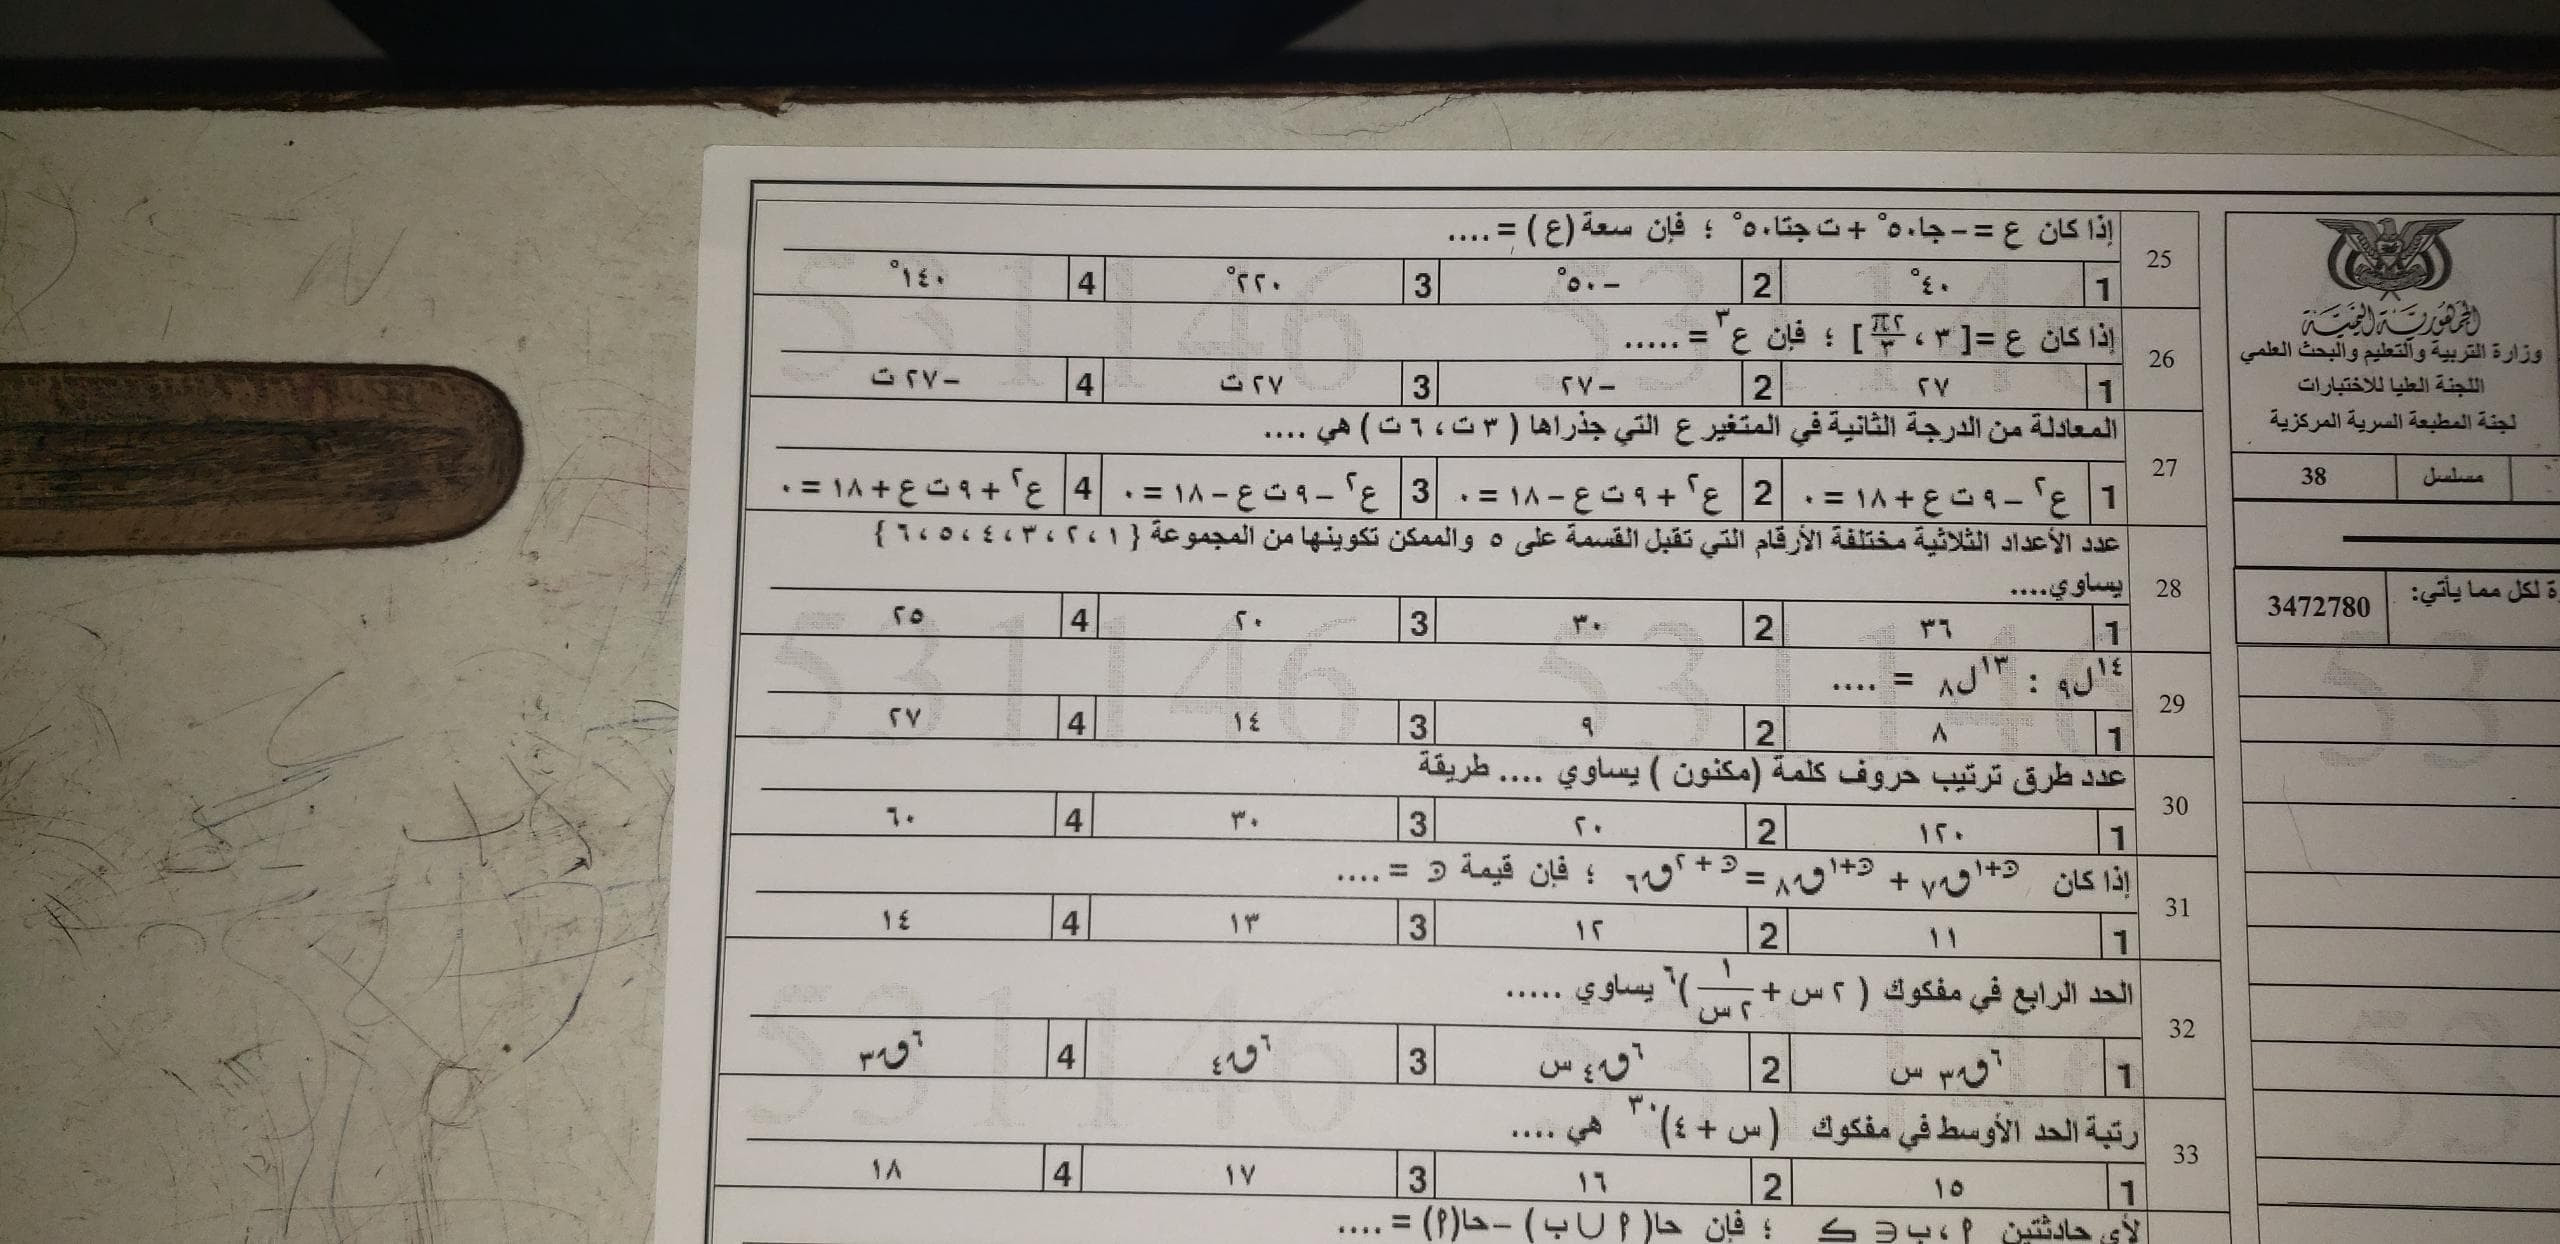 الجمهورية اليمنية
وزارة التربية والتعليم والبحث العلمي
اللجنة العليا للاختبارات
لجنة المطبعة السرية المركزية
مسلسل 38
ة لكل مما يأتي: 3472780
25 إذا كان ع = – جا٥٠° + ت جتا٥٠° ؛ فإن سعة (ع) = ....
1 ٤٠° 2 – ٥٠° 3 ٢٢٠° 4 ١٤٠°
26 إذا كان ع = [ ٣ ، ٢π/٣ ] ؛ فإن ع٣ = .....
1 ٢٧ 2 – ٢٧ 3 ٢٧ ت 4 – ٢٧ ت
27 المعادلة من الدرجة الثانية في المتغير ع التي جذراها ( ٣ ت ، ٦ ت ) هي ....
1 ع٢ – ٩ ت ع + ١٨ = ٠ 2 ع٢ + ٩ ت ع – ١٨ = ٠ 3 ع٢ – ٩ ت ع – ١٨ = ٠ 4 ع٢ + ٩ ت ع + ١٨ = ٠
28 عدد الأعداد الثلاثية مختلفة الأرقام التي تقبل القسمة على ٥ والممكن تكوينها من المجموعة { ١ ، ٢ ، ٣ ، ٤ ، ٥ ، ٦ }
يساوي....
1 ٣٦ 2 ٣٠ 3 ٢٠ 4 ٢٥
29 ١٤ل٩ : ١٣ل٨ = ....
1 ٨ 2 ٩ 3 ١٤ 4 ٢٧
30 عدد طرق ترتيب حروف كلمة (مكنون ) يساوي .... طريقة
1 ١٢٠ 2 ٢٠ 3 ٣٠ 4 ٦٠
31 إذا كان ن+١ق٧ + ن+١ق٨ = ن+٢ق٦ ؛ فإن قيمة ن = ....
1 ١١ 2 ١٢ 3 ١٣ 4 ١٤
32 الحد الرابع في مفكوك ( ٢ س + ١/٢ س )٦ يساوي .....
1 ٦ق٣ س 2 ٦ق٤ س 3 ٦ق٤ 4 ٦ق٣
33 رتبة الحد الأوسط في مفكوك ( س + ٤ )٣٠ هي ....
1 ١٥ 2 ١٦ 3 ١٧ 4 ١٨
لأي حادثتين م ، ب ∋ ك ؛ فإن حا( م ∪ ب ) – حا(م) = ....
531146 531146
531146 531146
531146
53
53